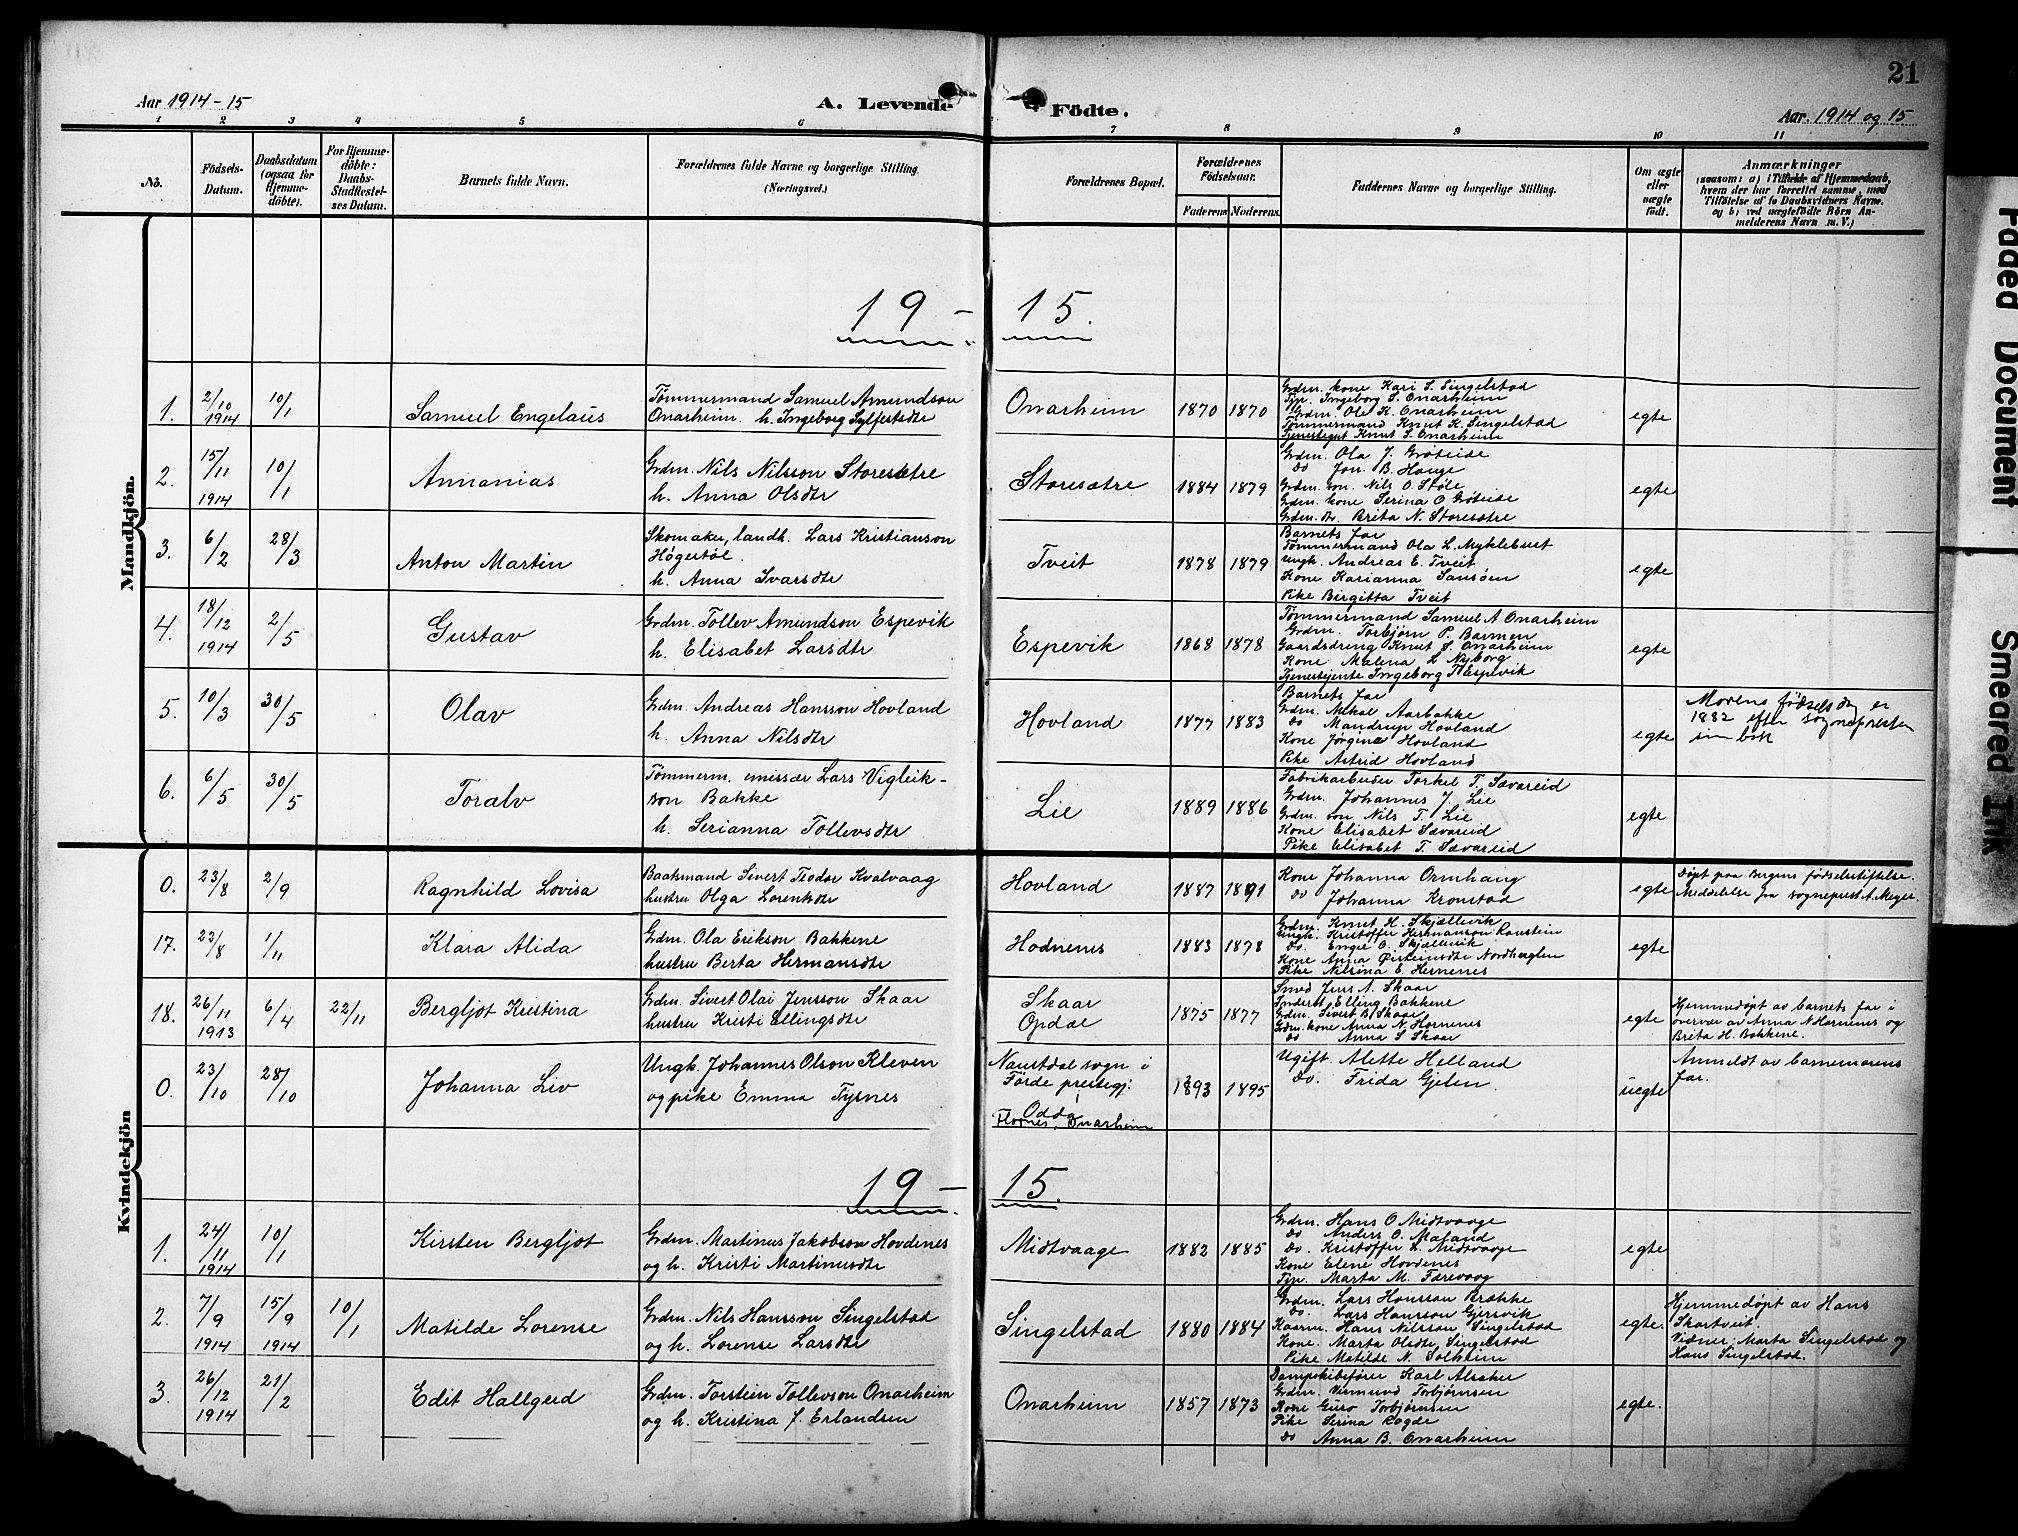 Aar 1914-15
A. Levende Födte.
Aar 1914 og 15
21
1 2 3 4 5 6 7 8 9 10 11
No.
Födsels-Datum.
Daabsdatum (ogsaa for Hjemmedöbte).
For Hjemmedöbte: Daabs-Stadfæstelses Datum.
Barnets fulde Navn.
Forældrenes fulde Navne og borgerlige Stilling.
(Næringsvei.)
Forældrenes Bopæl.
Forældrenes Födselsaar.
Faderens Moderens.
Faddernes Navne og borgerlige Stilling.
Om ægte eller uægte födt.
Anmærkninger
(saasom: a) i Tilfælde af Hjemmedaab,
hvem der har forrettet samme, med
Tilföielse af to Daabsvidners Navne.
og b) ved uægtefödte Börn An-
melderens Navn m. V.)
Mandkjön.
19 - 15.
1. 2/10 1914 10/1 Samuel Engelaus
Tömmermand Samuel Amundson
Onarheim. h. Ingeborg Sylfestsdtr
Onarheim 1870 1870
Grdm. kone Kari S. Singelstad
Tjp. Ingeborg S. Onarheim
Grdm. Ole K. Onarheim
Tömmermand Knut K. Singelstad
Tjenestegut Knut S. Onarheim
egte
2. 15/11 1914 10/1 Annanias
Grdm. Nils Nilsson Storesætre
h. Anna Olsdtr
Storesætre 1884 1879
Grdm. Ola J. Gröteide
do Jon. B. Hauge
Grdm. son. Nils O. Støle
Grdm. kone Serina O. Gröteide
Grdm. dtr. Brita N. Storesætre
egte
3. 6/2 28/3 Anton Martin
Skomaker, landh. Lars Kristianson
Högestöl.
h. Anna Ivarsdtr
Tveit 1878 1879
Barnets far
Tömmermand Ola L. Myklebust
Ungk. Andreas E. Tveit
Kone Karianna Sansöen
Pike Birgitta Tveit
egte
4. 18/12 1914 2/5 Gustav
Grdm. Tollev Amundson Espevik
h. Elisabet Larsdtr
Espevik 1868 1878
Tömmermand Samuel A Onarheim
Grdm. Torbjørn P. Barmen
Gaardsdreng Knut S. Onarheim
Kone Malena L Nyborg
Tjenestejente Ingeborg T. Espevik
egte
5. 10/3 30/5 Olav
Grdm. Andreas Hansson Hovland
h. Anna Nilsdtr
Hovland 1877 1883
Barnets far
Grdm. Mikal Aarbakke
do Mandrup Hovland
Kone Jørgine Hovland
Pike Astrid Hovland
egte
Morens fødselsdag er
1882 efter sognepresten
sin bok
6. 6/5 30/5 Toralv
Tömmerm. emissær Lars Vigleik-
son Bakke
h. Serianna Tollevsdtr
Lie 1889 1886
Fabrikarbeider Torkel T. Sævareid
Grdm. Johannes J. Lie
Grdm. son Nils T. Lie
Kone Elisabet Sævareid
Pike Elisabet T. Sævareid
egte
Kvindekjön
0. 23/8 2/9 Ragnhild Lovisa
Baatmand Sivert Teodor Kvalvaag
hustru Olga Lorentsdtr
Hovland 1887 1891
Kone Johanna Ormhaug
do Johanna Kronstad
egte
Døpt paa Bergens fødselsstiftelse.
Meddelelse fra sogneprest A. Meyer.
17. 23/8 1/11 Klara Alida
Grdm. Ola Erikson Bakkene
hustru Berta Hermansdtr
Hodnenes 1883 1878
Grdm. Knut H. Skjællevik
Ungk. Kristoffer Hermanson Ranstein
Do. Engel O. Skjællevik
Kone Anna Østeinsdtr Nordhuglen
Pike Nilsina E. Hernenes
egte
18. 26/11 1913 6/4 22/11 Bergljot Kristina
Grdm. Sivert Olai Jensson Skaar
hustru Kristi Ellingsdtr
Skaar
Opdal 1875 1877
Smed Jens N. Skaar
Inderst Elling Bakkene
Grdm. Sivert B. Skaar
Grdm. kone Anna N. Hornenes
do Anna S Skaar
egte
Hjemmedøpt av barnets far i
overvær av Anna N Hornenes og
Brita H. Bakkene.
0. 23/10 28/10 Johanna Liv
Ungk. Johannes Olson Kleven
og pike Emma Tysnes
Naustdal sogn i
Førde prestegj:
Odda
Flornes, Onarheim
1893 1895
Ugift. Alette Helland
Do. Frida Gjelen.
uegte
Anmeldt av barnemorens
far.
19 - 15.
1. 24/11 1914 10/1 Kirsten Bergljot
Grdm. Martinus Jakobson Hovdenes
og h. Kristi Martinusdtr
Midtvaage 1882 1885
Grdm. Hans O Midtvaage
do Anders O. Maland
Do. Kristoffer L. Midtvaage
Kone Elene Hovdenes
Tjp. Marta M. Færevaag
egte
2. 7/9 1914 15/9 1914 10/1 Matilde Lorense
Grdm. Nils Hansson Singelstad
og h. Lorense Larsdtr
Singelstad 1880 1884
Grdm. Lars Hansson Brække
Do. Lars Hansson Gjersvik
Kaarm. Hans Nilsson Singelstad
Kone. Marta Olsdtr Singelstad
Pike Matilde N. Solheim
egte.
Hjemmedøpt av Hans
Skartveit.
Vidner: Marta Singelstad og
Hans Singelstad.
3. 26/12 1914 21/2 Edit Hallgerd
Grdm. Torstein Tollevson Onarheim
og h. Kristina f. Erlandsen
Onarheim 1857 1873
Dampskibsfører Karl Alsaker
Grdm. Vermund Torbjørnsen
Kone Guro Torbjørnsen
Pike Serina Rogde
do Anna B. Onarheim
egte.
Faded Document
Smeared Ink